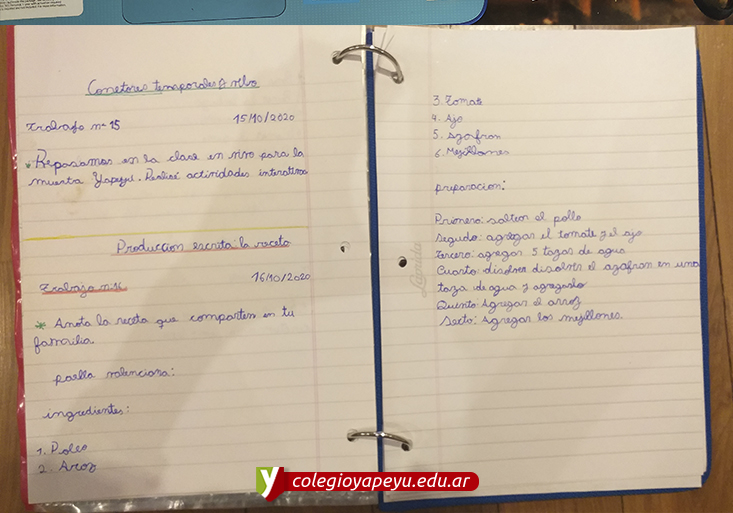 Conetores temporales y
Trabajo n= 15 15/10/2020
* Repasamos en la clase en vivo para la
muestra Yapeyú. Realicé actividades interativas
Produccion escrita: la receta
Trabajo n:16 16/10/2020
* Anota la receta que comparten en tu
familia.
paella valenciana:
ingredientes:
1. Pollo
2. Arroz
3. Tomate
4. Ajo
5. Azafran
6. Mejillones
preparacion:
Primero: saltear el pollo
Segudo: agregar el tomate y el ajo
Tercero: agregar 5 tazas de agua
Cuarto: disolver disolver el azafran en una
taza de agua y agregarlo
Quinto: Agregar el arroz
Sexto: Agregar los mejillones.
colegioyapeyu.edu.ar